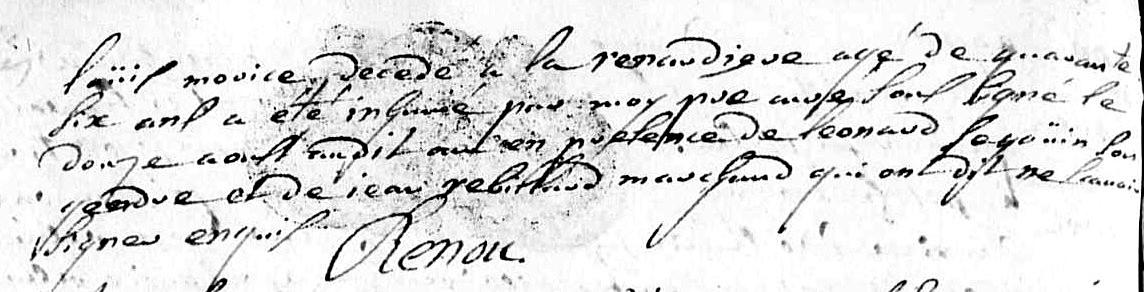 loüis morice decedé a la renaudiere agé de quarante
six ans a été inhumé par moy pre curé sous signé le
douze aoust audit an en presence de leonard segoüin son
gendre et de jean rebillard marchand qui ont dit ne savoir
signer enquis Renou.